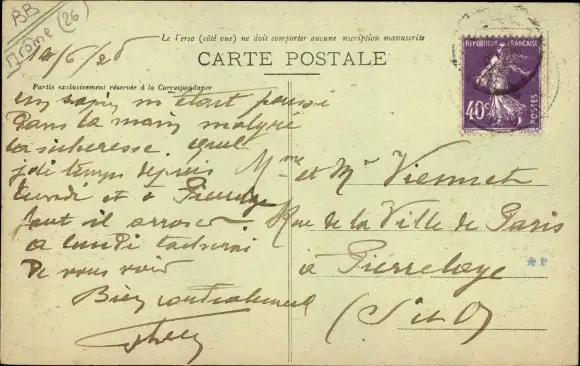 BB
Drôme (26)
Le verso (côté vue) ne doit comporter aucune inscription manuscrite
12/6/26
CARTE POSTALE
Partie exclusivement réservée à la Correspondance
REPUBLIQUE FRANÇAISE
40c
POSTES
un sapin m'était poussé
dans la main malgré
la sécheresse quel
joli temps depuis
lundi et à Pierrelaye
faut il arroser
à lundi
de vous voir
Bien cordialement
Mme et Mr Viennet
Rue de la Ville de Paris
à Pierrelaye
(S et O)
P